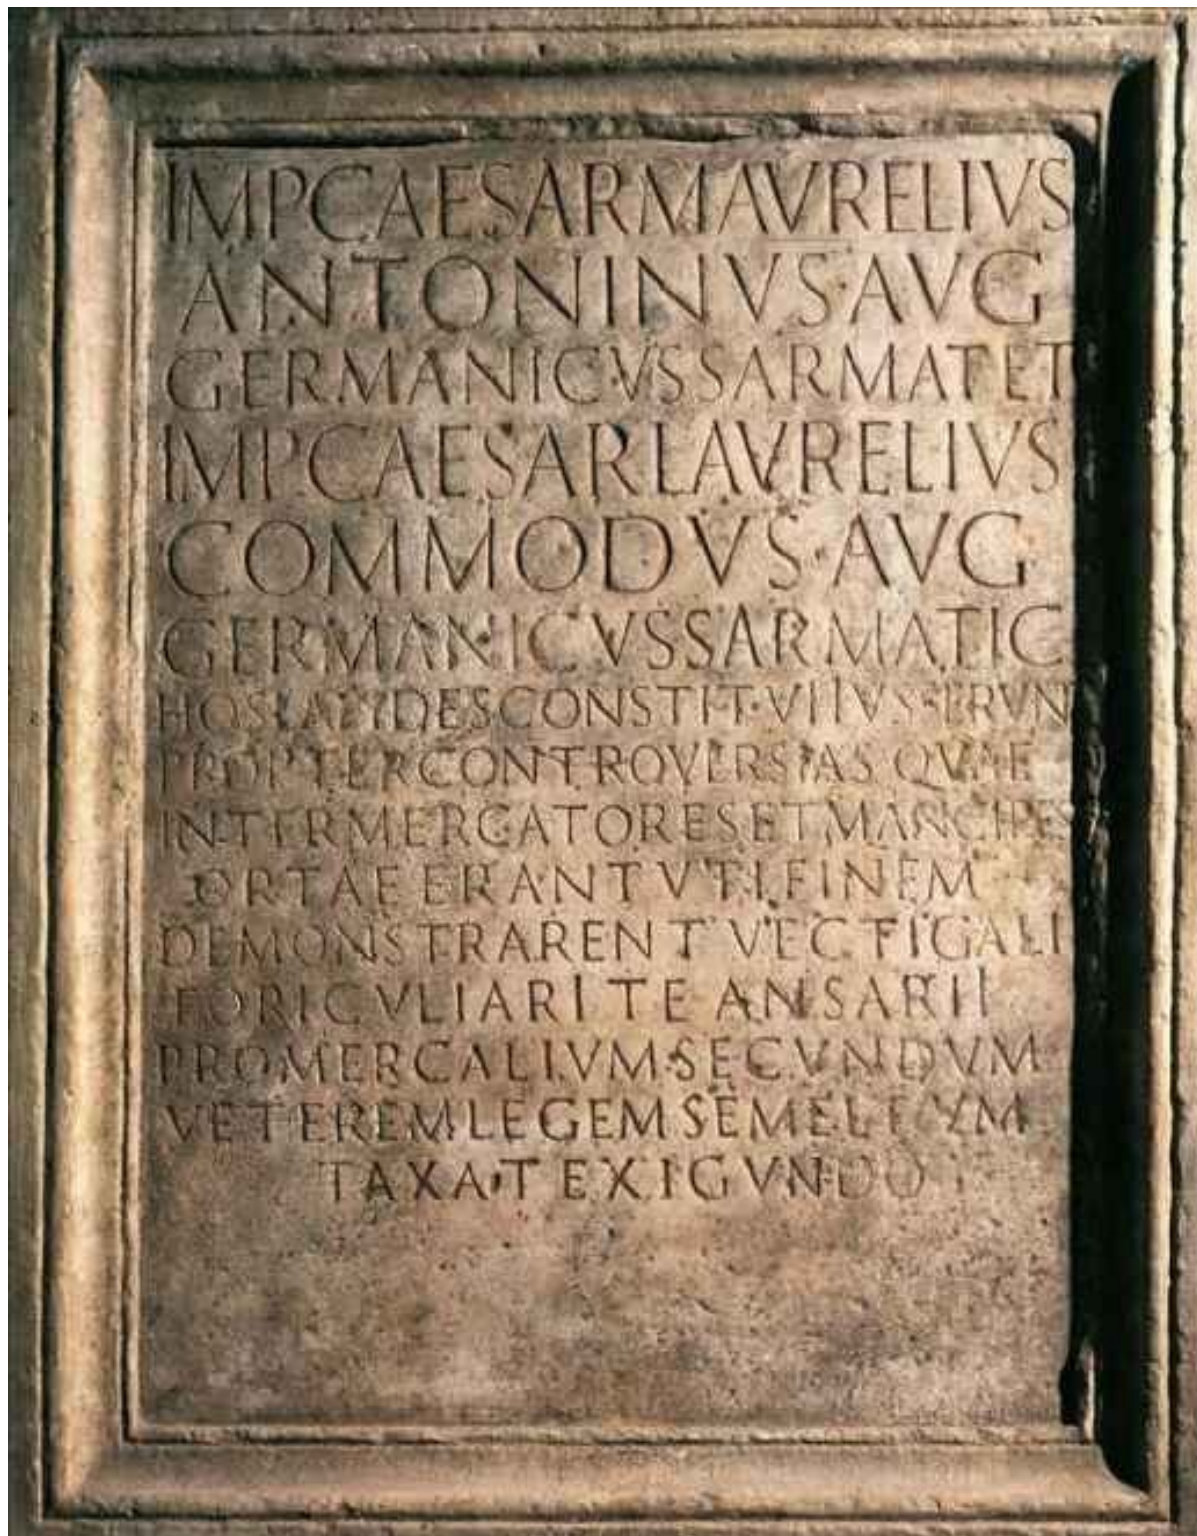 IMP CAESAR M AVRELIVS
ANTONINVS AVG
GERMANICVS SARMAT ET
IMP CAESAR L AVRELIVS
COMMODVS AVG
GERMANICVS SARMATIC
HOS LAPIDES CONSTITVI IVSSERVNT
PROPTER CONTROVERSIAS QVAE
INTER MERCATORES ET MANCIPES
ORTAE ERANT VTI FINEM
DEMONSTRARENT VECTIGALI
FORICVLIARI T E ANSARII
PROMERCALIVM SECVNDVM
VETEREM LEGEM SEMEL
TAXAT EXIGVNDO